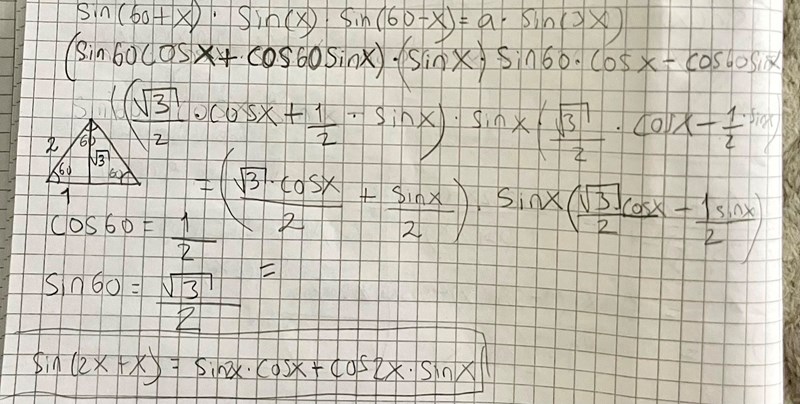 sin(60+x) · sin(x) · sin(60-x) = a · sin(3x)
(sin60cosx + cos60sinx) · (sinx) sin60 · cosx - cos60sinx
((√3/2 · cosx + 1/2 · sinx) · sinx (√3/2 · cosx - 1/2 · sinx)
2 60 √3 60 60 1
= (√3 · cosx/2 + sinx/2) · sinx (√3/2 cosx - 1 sinx/2)
cos60 = 1/2
sin60 = √3/2 =
sin(2x + x) = sin2x · cosx + cos2x · sinx